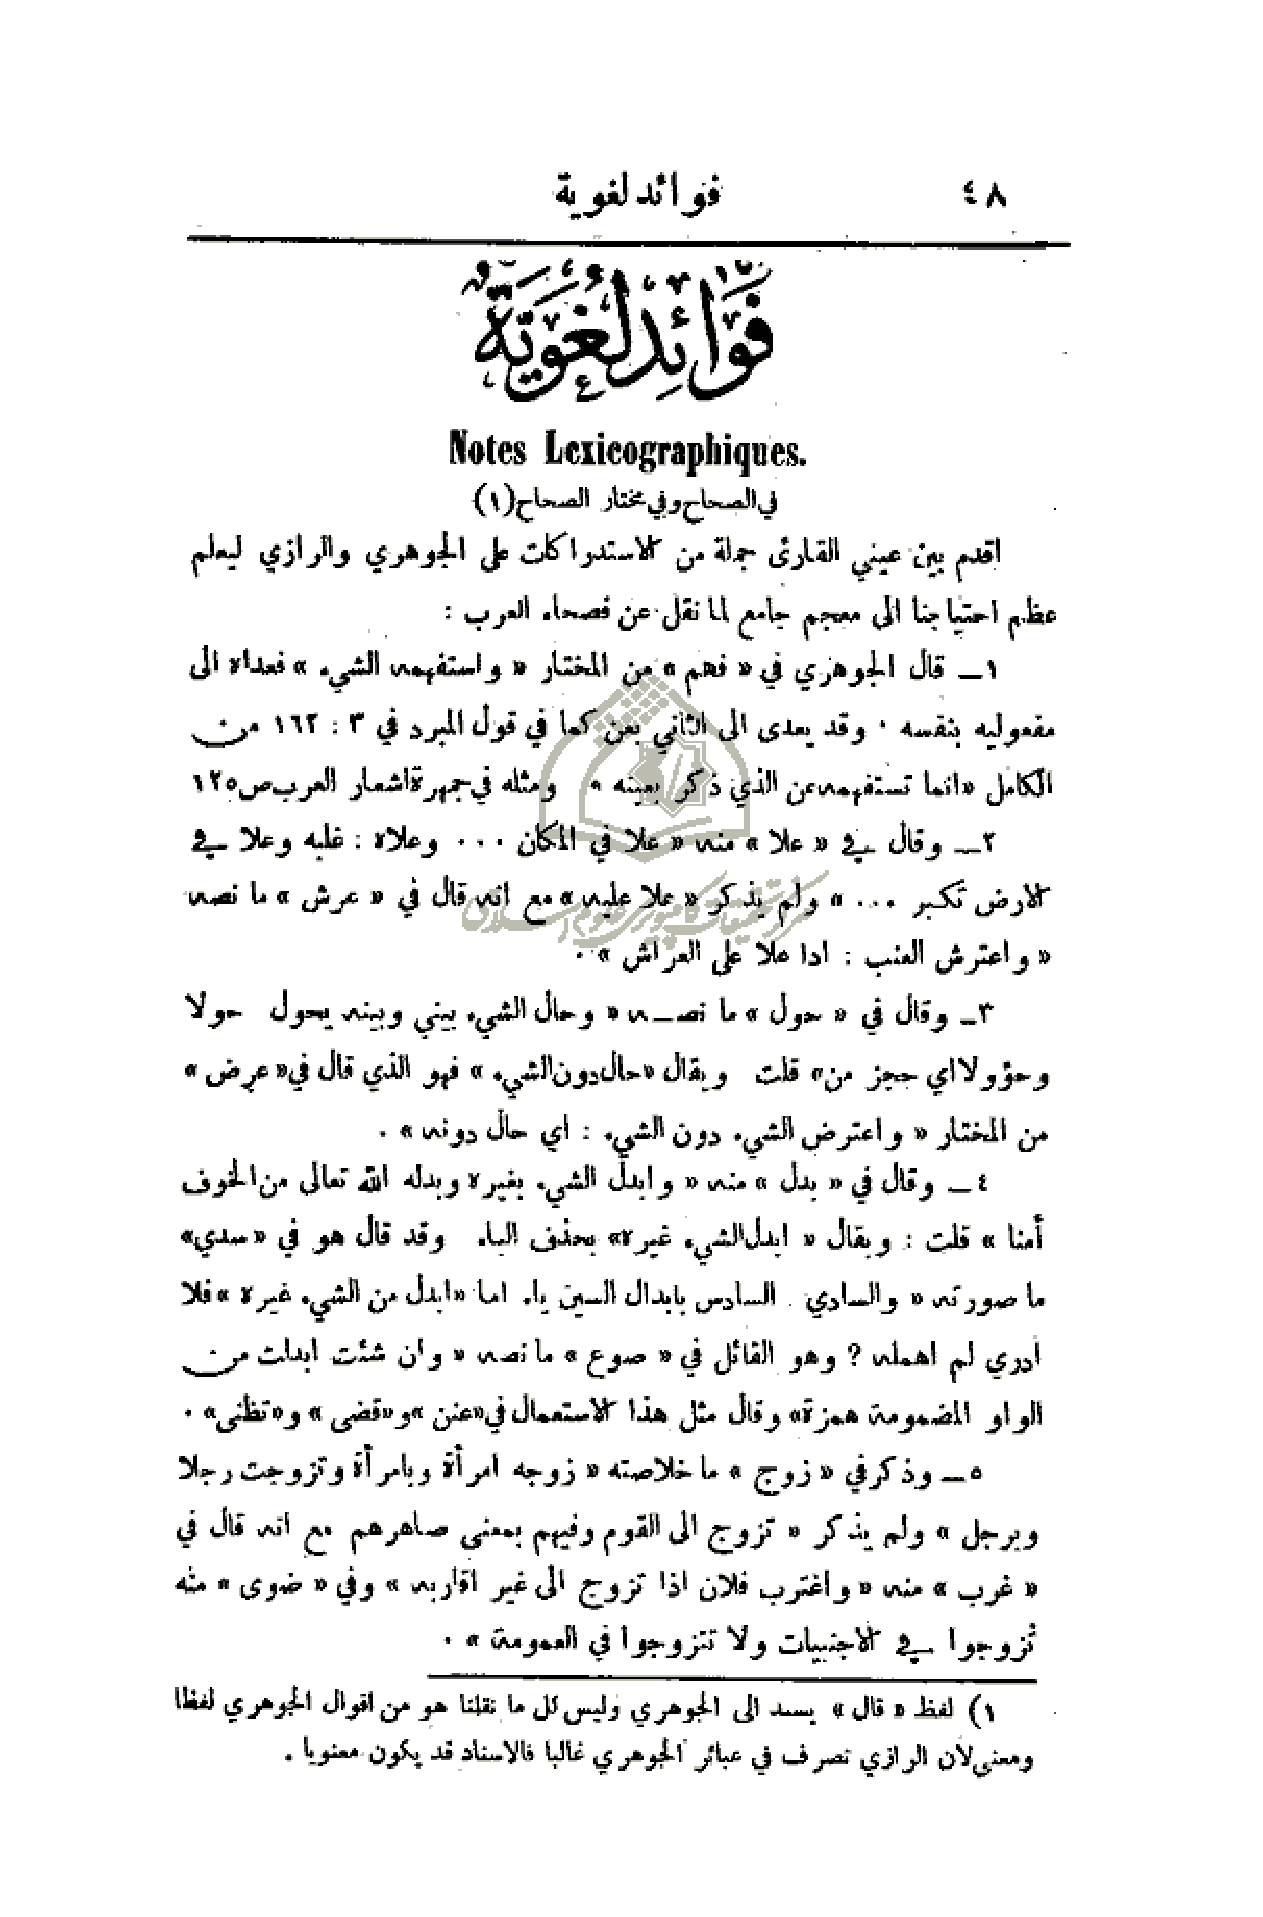 ٤٨ فوائد لغوية
فَوَائِدُ لُغَوِيَّةٌ
Notes Lexicographiques.
في الصحاح وفي مختار الصحاح (١)
اقدم بين عيني القارئ جملة من الاستدراكات على الجوهري والرازي ليعلم
عظم احتياجنا الى معجم جامع لما نقل عن فصحاء العرب :
١ــ قال الجوهري في « فهم » من المختار « واستفهمه الشيء » فعداه الى
مفعوليه بنفسه ٠ وقد يعدى الى الثاني بعن كما في قول المبرد في ٣ : ١٦٢ من
الكامل «انما تستفهمه عن الذي ذكر بعينه » ومثله في جمهرة اشعار العرب ص١٢٥
٢ــ وقال في « علا » منه « علا في المكان ٠٠٠ وعلاه : غلبه وعلا في
الارض تكبر ٠٠٠ » ولم يذكر « علا عليه » مع انه قال في « عرش » ما نصه
« واعترش العنب : اذا علا على العراش » ٠
٣ــ وقال في « حول » ما نصــه « وحال الشيء بيني وبينه يحول حولا
وحؤولا اي حجز من» قلت ويقال «حال دون الشيء » فهو الذي قال في« عرض »
من المختار « واعترض الشيء دون الشيء : اي حال دونه » ٠
٤ــ وقال في « بدل » منه « وابدل الشيء بغيره وبدله الله تعالى من الخوف
أمنا » قلت : ويقال « ابدل الشيء غيره» بحذف الباء وقد قال هو في « سدي»
ما صورته « والسادي السادس بابدال السين ياء اما «ابدل من الشيء غيره » فلا
ادري لم اهمله ? وهو القائل في « صوع » ما نصه « وان شئت ابدلت من
الواو المضمومة همزة» وقال مثل هذا الاستعمال في«عنن »و«قضى » و«تظنى» ٠
٥ــ وذكر في « زوج » ما خلاصته « زوجه امرأة وبامرأة وتزوجت رجلا
وبرجل » ولم يذكر « تزوج الى القوم وفيهم بمعنى صاهرهم مع انه قال في
« غرب » منه « واغترب فلان اذا تزوج الى غير اقاربه » وفي « ضوى » منه
تزوجوا في الاجنبيات ولا تتزوجوا في العمومة » ٠
١) لفظ « قال » يسند الى الجوهري وليس كل ما نقلنا هو من اقوال الجوهري لفظا
ومعنى لان الرازي تصرف في عبائر الجوهري غالبا فالاسناد قد يكون معنويا .
مركز تحقيقات كامپيوتری علوم اسلامی